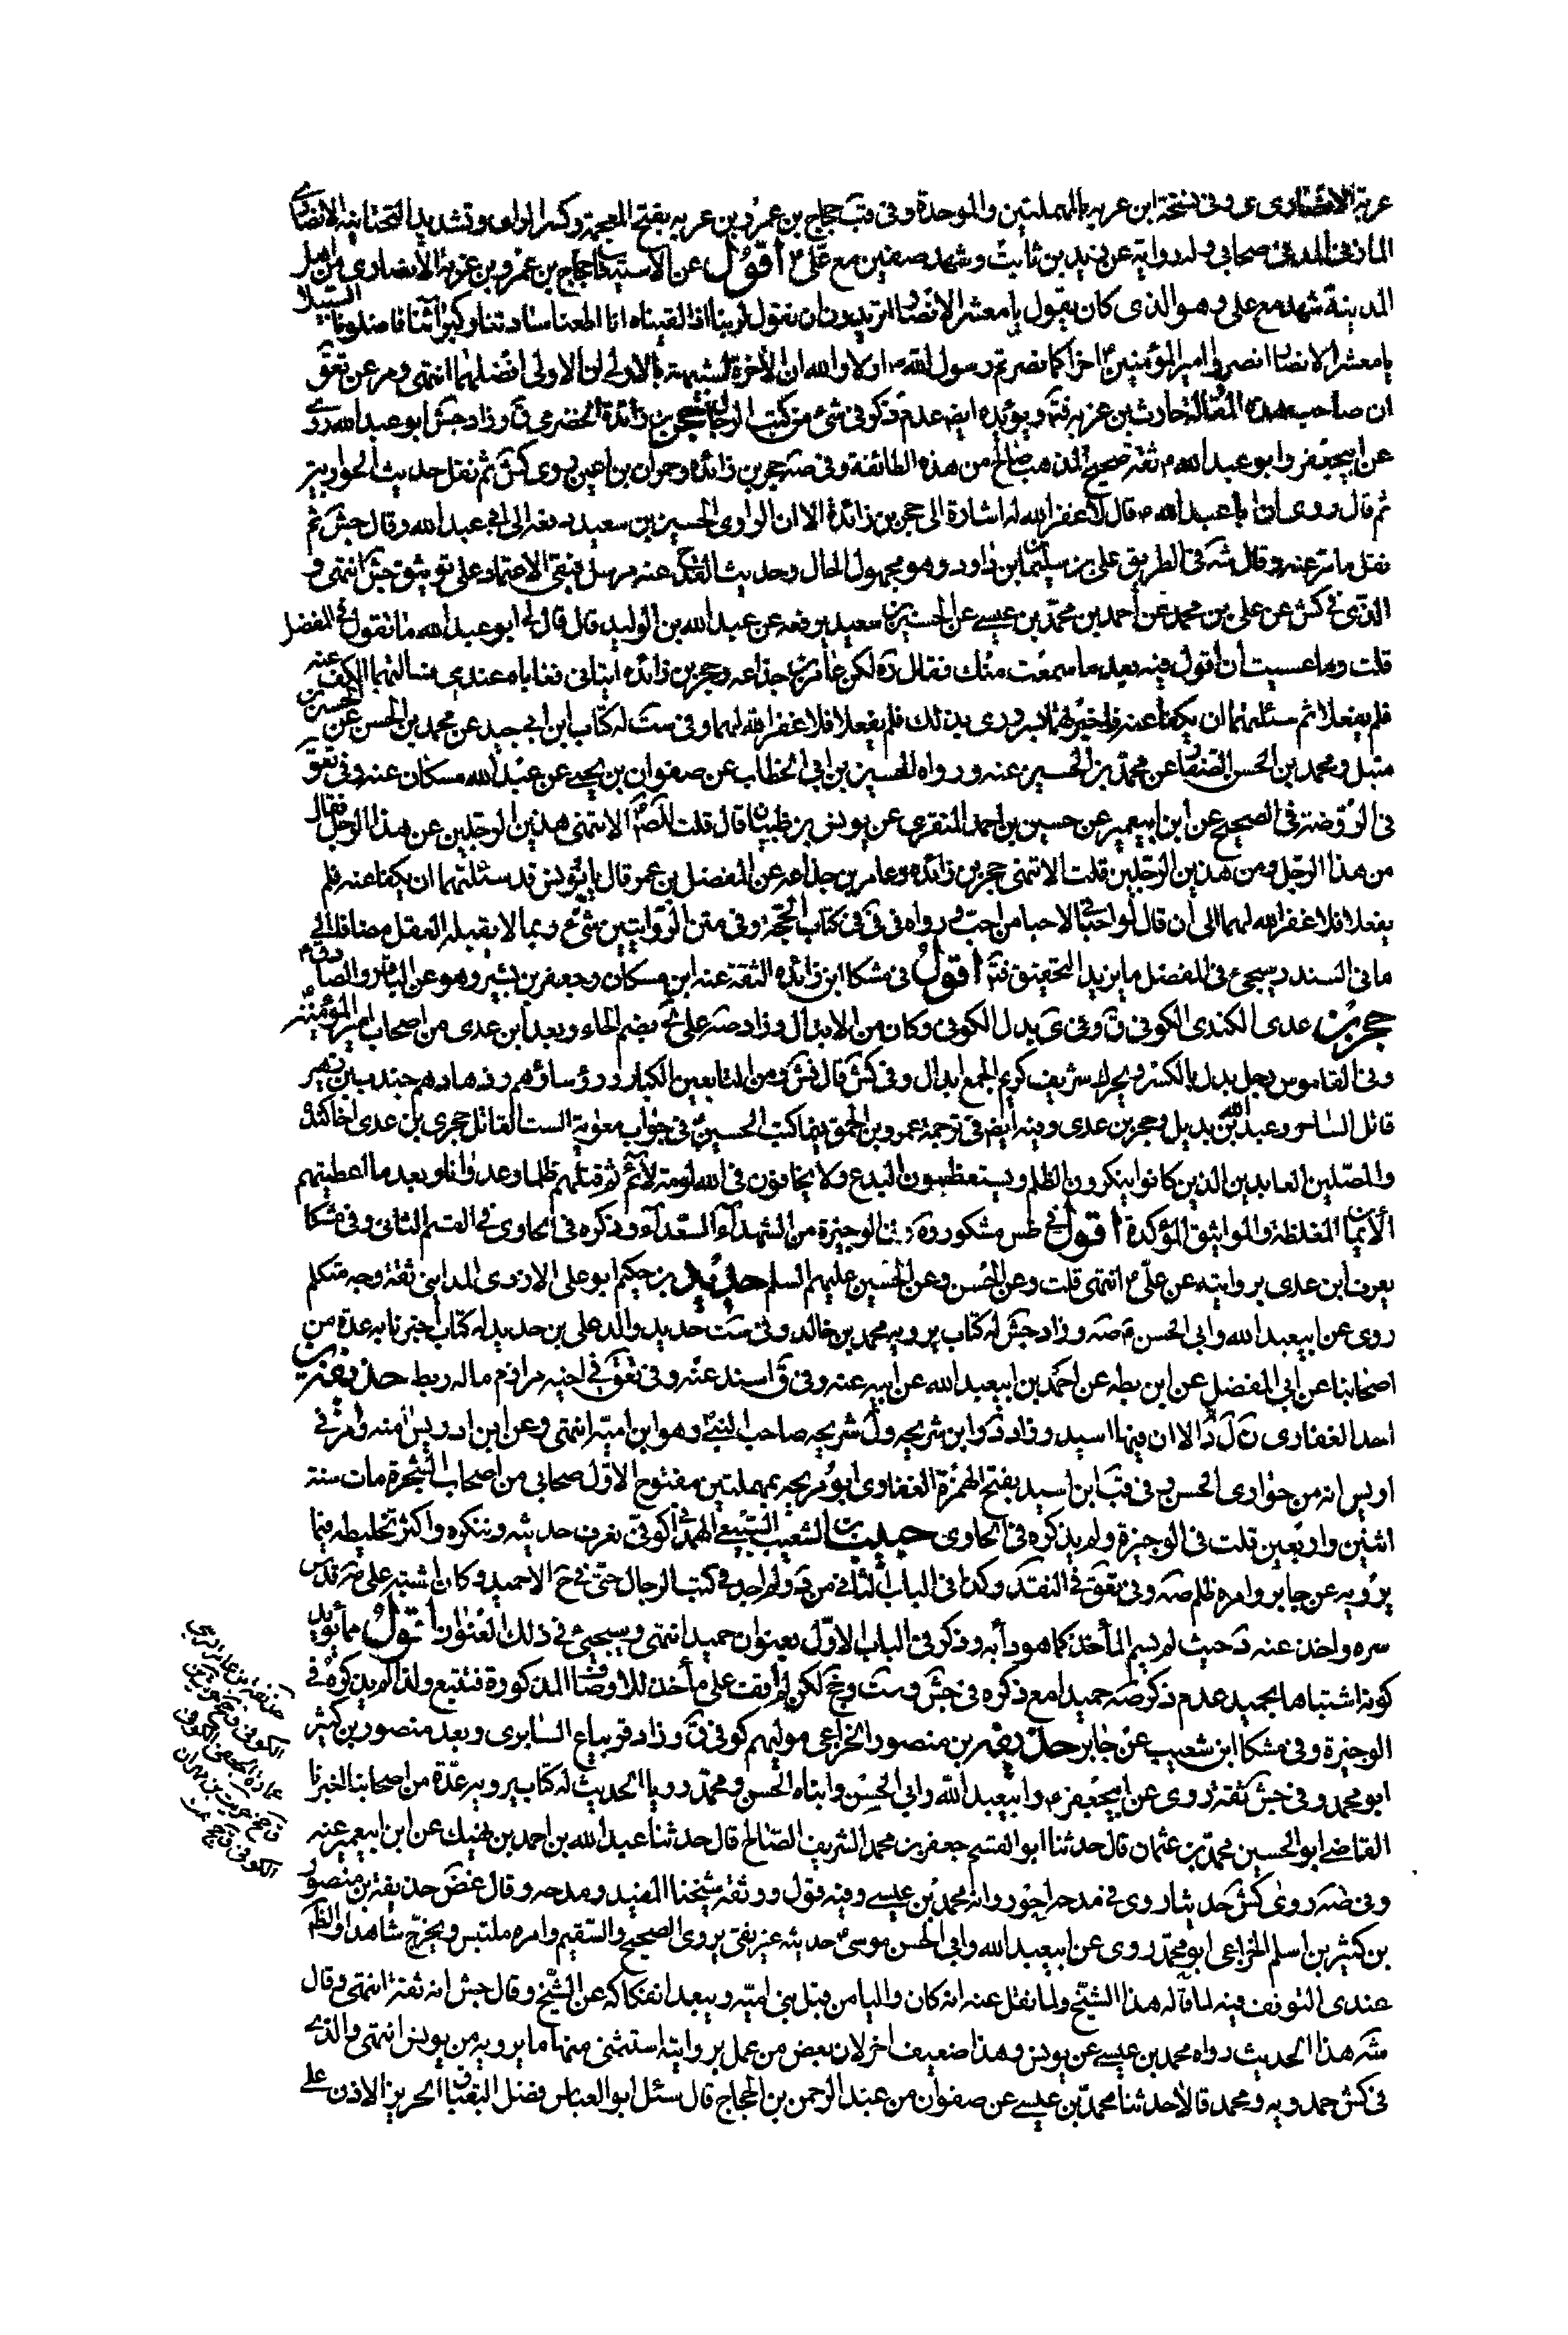 عربة الانصارى ى وفى نسخة ابن عربه بالمهملتين والموحدة وفى قب حجاج بن عمرو بن عزيه بفتح المعجمة وكسر الزاى وتشديد التحتانية الانصارى
المازنى المدنى صحابى وله رواية عن زيد بن ثابت وشهد صفين مع على ع اقول عن الاستيعاب حجاج بن عمرو بن عزية الانصارى من اهل
المدينة شهد مع على وهو الذى كان يقول يا معشر الانصار اتريدون ان نقول لربنا اذا لقيناه انا اطعنا سادتنا وكبرآئنا فاضلونا السبيلا
يا معشر الانصار انصروا امير المؤمنين اخرا كما نصرتم رسول الله اولا والله ان الأخرة لشبيهة بالاولى ان الاولى افضلهما انتهى ومر عن تعق
ان صاحب هذه المقالة حارث بن عزيه فتم ويؤيده ايضا عدم ذكره فى شئ من كتب الرجال حجر بن زائدة الحضرمى ق وزاد جش ابو عبد الله روى
عن ابيجعفر وابو عبد الله ع ثقة صحيح المذهب صالح من هذه الطائفة وفى صه حجر بن زائده وحمران بن اعين روى كش ثم نقل حديث الحواريين
ثم قال روى ان ابا عبد الله ع قال لا غفر الله له اشارة الى حجر بن زائدة الا ان الراوى الحسين بن سعيد يرفعه الى ابى عبد الله وقال جش ثم
نقل مامر عنه وقال شه فى الطريق على بن سليمان بن داود وهو مجهول الحال وحديث القدح عنه مرسل فبقى الاعتماد على توثيق جش انتهى و
الذى فى كش عن على بن محمد عن أحمد بن محمد بن عيسى عن الحسين بن سعيد يرفعه عن عبد الله بن الوليد قال قال لى ابو عبد الله ما تقول فى المفضل
قلت وما عسيت أن أقول فيه بعد ما سمعت منك فقال ره لكن عامر بن جذاعه وحجر بن زائده اتيانى فعاباه عندى فسالتهما الكف عنه
فلم يفعلا ثم سئلتهما ان يكفا عنه واخبرتهما بسرورى بذلك فلم يفعلا فلا غفر الله لهما وفى ست له كتاب ابن ابى جيد عن محمد بن الحسن عن الحسين بن
متيل ومحمد بن الحسن الصفار عن محمد بن الحسين عنه ورواه الحسين بن ابى الخطاب عن صفوان بن يحيى عن عبد الله مسكان عنه وفى تعق
فى الروضة فى الصحيح عن ابن ابيعمير عن حسين بن احمد المنقرى عن يونس بن ظبيان قال قلت للصم الا تنهى هذين الرجلين عن هذا الرجل فقال
من هذا الرجل ومن هذين الرجلين قلت الا تنهى حجر بن زائده وعامر بن جذاعه عن المفضل بن عمر قال يا يونس قد سئلتهما ان يكفا عنه فلم
يفعلا فلا غفر الله لهما الى ان قال لو احبانى لاحبا من احب ورواه فى فى كتاب الحجة وفى متن الروايتين شئ ربما لا يقبله العقل مضافا الى
ما فى السند وسيجئ فى المفضل ما يزيد التحقيق فتم اقول فى مشكا ابن زائده الثقة عنه ابن مسكان وجعفر بن بشير وهو عن الباقر والصادق ع
حجر بن عدى الكندى الكوفى ق وفى ى بدل الكوفى وكان من الابدال وزاد صه على ى بضم الحاء وبعد ابن عدى من اصحاب امير المؤمنين
وفى القاموس رجل بدل بالكسر ويحرك شريف كريم الجمع ابدال وفى كش قال فش ومن التابعين الكبار ورؤساؤهم وزهادهم جندب بن زهير
قاتل الساحر وعبد الله بن بديل وحجر بن عدى وفيه ايضا فى ترجمة عمرو بن الحمق فيما كتب الحسين فى جواب معوية الست القاتل حجر بن عدى اخا كندة
والمصلين العابدين الذين كانوا ينكرون الظلم ويستعظمون البدع ولا يخافون فى الله لومة لآئم ثم قتلتهم ظلما وعدوانا وبعد ما اعطيتهم
الأيمان المغلظة والمواثيق المؤكدة اقول فى طس مشكور وه فى الوجيزة من الشهدآء السعدآء وذكره فى الحاوى فى القسم الثانى وفى مشكا
يعرف ابن عدى بروايته عن على ع انتهى قلت وعن الحسن وعن الحسين عليهم السلم حديد بن حكيم ابو على الازدى المدائنى ثقة وجه متكلم
روى عن ابيعبد الله وابى الحسن م صه وزاد جش له كتاب يرويه محمد بن خالد وفى ست حديد والد على بن حديد له كتاب اخبرنا به عدة من
اصحابنا عن ابى المفضل عن ابن بطه عن احمد بن ابيعبد الله عن ابيه عنه وفى ق اسند عنه وفى تعق فى اخيه مرازم ماله ربط حذيفة بن
اسد الغفارى ن ل ذ الا ان فيها اسيد وزاد ذ و ابن شريحه ول شريحه صاحب النبى وهو ابن اميه انتهى وعن ابن ادريس امنه ومر فى
اويس انه من حوارى الحسن و فى قب ابن اسيد بفتح الهمزة الغفارى ابو سريحه بمهملتين مفتوح الاول صحابى من اصحاب الشجرة مات سنة
اثنين واربعين قلت فى الوجيزة ولم يذكره فى الحاوى حديث الشعيب السبيعى الهمدانى الكوفى نعرف حديثه وننكره واكثر تخليطه فيما
يرويه عن جابر وامره ظلم صه وفى تعق فى النقد وكذا فى الباب الثانى من د ولم اجد فى كتب الرجال حتى فى خ الا حميد وكان اشتبه على صه قدس
سره واخذ عنه د حيث لم يسم المأخذ كما هو دأبه وذكر فى الباب الاول بعنوان حميد انتهى وسيجيئ فى ذلك العنوان اقول مما يؤيد
كونه اشتباها بحميد عدم ذكر صه حميدا مع ذكره فى جش وست وجخ لكن لم أقف على مأخذ للاوصاف المذكورة فتتبع ولذا لم يذكره فى
الوجيزة وفى مشكا ابن شعيب عن جابر حذيفه بن منصور الخزاعى موليهم كوفى ق وزاد قر بياع السابرى وبعد منصور بن كثير
ابو محمد وفى جش ثقة روى عن ابيجعفر ع وابيعبد الله وابى الحسن وابناه الحسن ومحمد رويا الحديث له كتاب يرويه عدة من اصحابنا اخبرنا
القاضى ابو الحسين محمد بن عثمان قال حدثنا ابو القسم جعفر بن محمد الشريف الصالح قال حدثنا عبد الله بن احمد بن نهيك عن ابن ابيعمير عنه
وفى صه روى كش حديثا روى فى مدحه احد رواته محمد بن عيسى وفيه قول ووثقه شيخنا المفيد ومدحه وقال غض حذيفة بن منصور
بن كثير بن اسلم الخزاعى ابو محمد روى عن ابيعبد الله وابى الحسن موسى ع حديثه غير نقى يروى الصحيح والسقيم وامره ملتبس ويخرج شاهدا والظ
عندى التوقف فيه لما قاله هذا الشيخ ولما نقل عنه انه كان واليا من قبل بنى اميه ويبعد انفكاكه عن القبيح وقال جش انه ثقة انتهى وقال
شه هذا الحديث رواه محمد بن عيسى عن يونس وهذا ضعيف اخر لان بعض من عمل بروايته استثنى منها ما يرويه عن يونس انتهى والذى
فى كش حمدويه ومحمد قالا حدثنا محمد بن عيسى عن صفوان عن عبد الرحمن بن الحجاج قال سئل ابو العباس فضل البقباق لحريز الاذن على